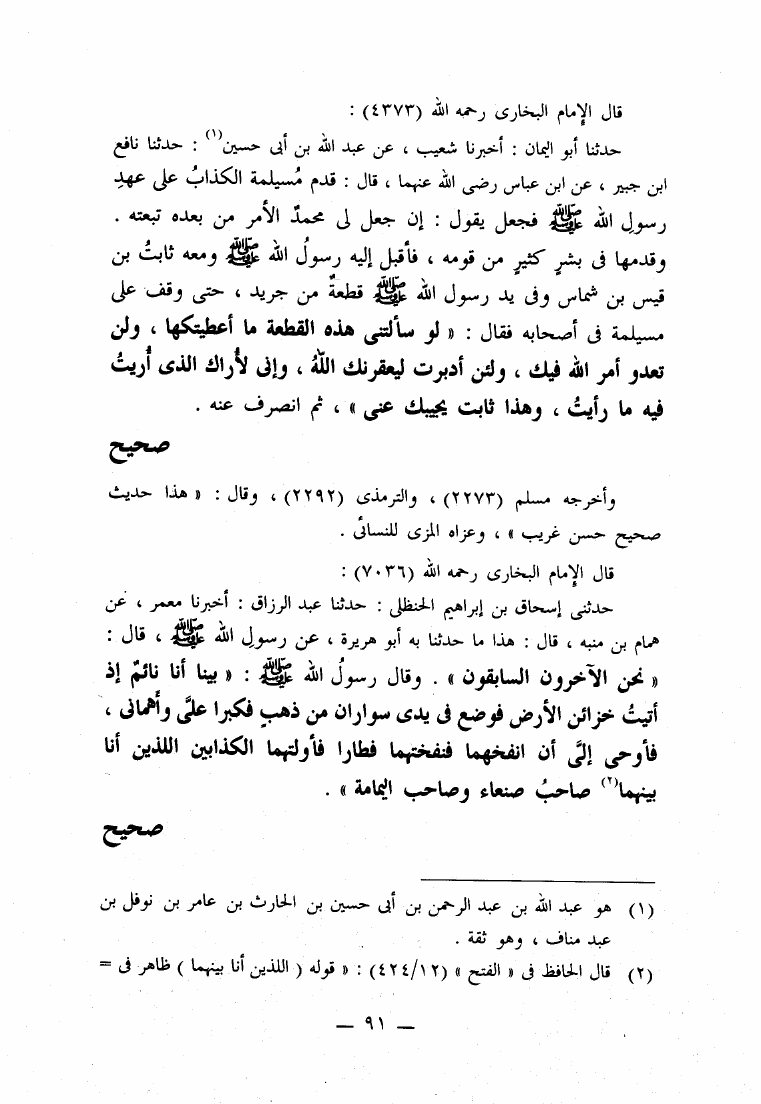 قال الإمام البخارى رحمه الله (٤٣٧٣) :
حدثنا أبو اليمان : أخبرنا شعيب ، عن عبد الله بن أبى حسين(١) : حدثنا نافع
ابن جبير ، عن ابن عباس رضى الله عنهما ، قال : قدم مُسيلمة الكذابُ على عهدِ
رسولِ الله ﷺ فجعل يقول : إن جعل لى محمدٌ الأمر من بعده تبعته .
وقدمها فى بشرٍ كثيرٍ من قومه ، فأقبل إليه رسولُ الله ﷺ ومعه ثابتُ بن
قيس بن شماس وفى يد رسول الله ﷺ قطعةٌ من جريد ، حتى وقف على
مسيلمة فى أصحابه فقال : « لو سألتنى هذه القطعة ما أعطيتكها ، ولن
تعدو أمر الله فيك ، ولئن أدبرت ليعقرنك اللهُ ، وإنى لأُراك الذى أُريتُ
فيه ما رأيتُ ، وهذا ثابت يجيبك عنى » ، ثم انصرف عنه .
صحيح
وأخرجه مسلم (٢٢٧٣) ، والترمذى (٢٢٩٢) ، وقال : « هذا حديث
صحيح حسن غريب » ، وعزاه المزى للنسائى .
قال الإمام البخارى رحمه الله (٧٠٣٦) :
حدثنى إسحاق بن إبراهيم الحنظلى : حدثنا عبد الرزاق : أخبرنا معمر ، عن
همام بن منبه ، قال : هذا ما حدثنا به أبو هريرة ، عن رسولِ الله ﷺ ، قال :
« نحن الآخرون السابقون » . وقال رسولُ الله ﷺ : « بينا أنا نائمٌ إذ
أتيتُ خزائن الأرض فوضع فى يدى سواران من ذهبٍ فكبرا علىَّ وأهمانى ،
فأوحى إلىَّ أن انفخهما فنفختهما فطارا فأولتهما الكذابين اللذين أنا
بينهما(٢) صاحبُ صنعاء وصاحب اليمامة » .
صحيح
(١) هو عبد الله بن عبد الرحمن بن أبى حسين بن الحارث بن عامر بن نوفل بن
عبد مناف ، وهو ثقة .
(٢) قال الحافظ فى « الفتح » (٤٢٤/١٢) : « قوله ( اللذين أنا بينهما ) ظاهر فى =
— ٩١ —